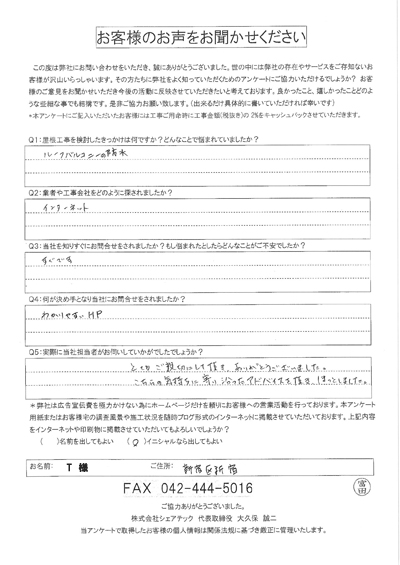 お客様のお声をお聞かせください
この度は弊社にお問い合わせをいただき、誠にありがとうございました。世の中には弊社の存在やサービスをご存知ないお
客様が沢山いらっしゃいます。その方たちに弊社をよく知っていただくためのアンケートにご協力いただけるでしょうか? お客
様のご意見をお聞かせいただき今後の活動に反映させていただきたいと考えております。良かったこと、嬉しかったことどのよ
うな些細な事でも結構です。是非ご協力お願い致します。(出来るだけ具体的に書いていただければ幸いです)
*本アンケートにご記入いただいたお客様には工事ご用命時に工事金額(税抜き)の2%をキャッシュバックさせていただきます。
Q1:屋根工事を検討したきっかけは何ですか?どんなことで悩まれていましたか?
ルーフバルコニーの防水
Q2:業者や工事会社をどのように探されましたか?
インターネット
Q3:当社を知りすぐにお問合せをされましたか?もし悩まれたとしたらどんなことがご不安でしたか?
すぐです
Q4:何が決め手となり当社にお問合せをされましたか?
わかりやすいHP
Q5:実際に当社担当者がお伺いしていかがでしたでしょうか?
とてもご親切にして頂き、ありがとうございました。
こちらの気持ちに寄り沿ったアドバイスを頂き、ほっとしました。
*弊社は広告宣伝費を極力かけない為にホームページだけを頼りにお客様への営業活動を行っております。本アンケート
用紙またはお客様宅の調査風景や施工状況を随時ブログ形式のインターネットに掲載させていただいております。上記内容
をインターネットや印刷物に掲載させていただいてもよろしいでしょうか?
( )名前を出してもよい (○)イニシャルなら出してもよい
お名前: T 様 ご住所: 新宿区新宿
FAX 042-444-5016
富田
ご協力ありがとうございました。
株式会社シェアテック 代表取締役 大久保 誠二
当アンケートで取得したお客様の個人情報は関係法規に基づき厳正に管理いたします。